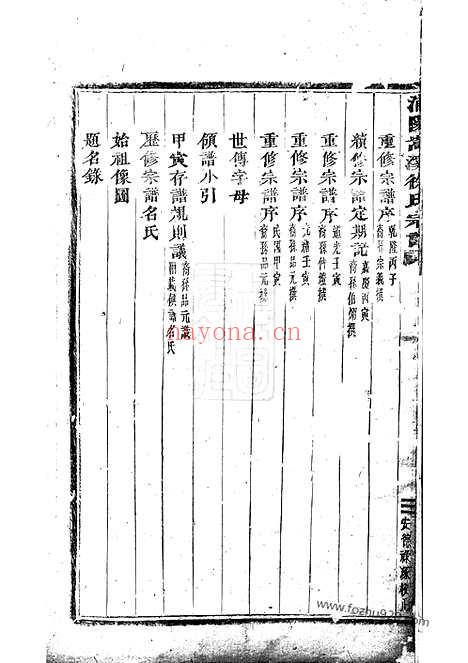 重修宗譜序 乾隆丙子 裔孫宗義撰
續修宗譜定期記 嘉慶丙寅 裔孫伯炳撰
重修宗譜序 道光壬寅 裔孫作壇撰
重修宗譜序 光緒壬寅 裔孫品元撰
重修宗譜序 民國甲寅 裔孫品元撰
世傳字母
領譜小引
甲寅存譜規則議 裔孫品元議
歷修宗譜名氏
始祖像圖
題名錄
徐氏宗譜
nayona.cn
www.fozhu920.com